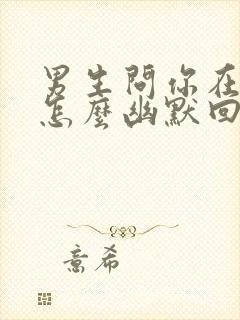 男生問你在
怎麼幽默回
意希